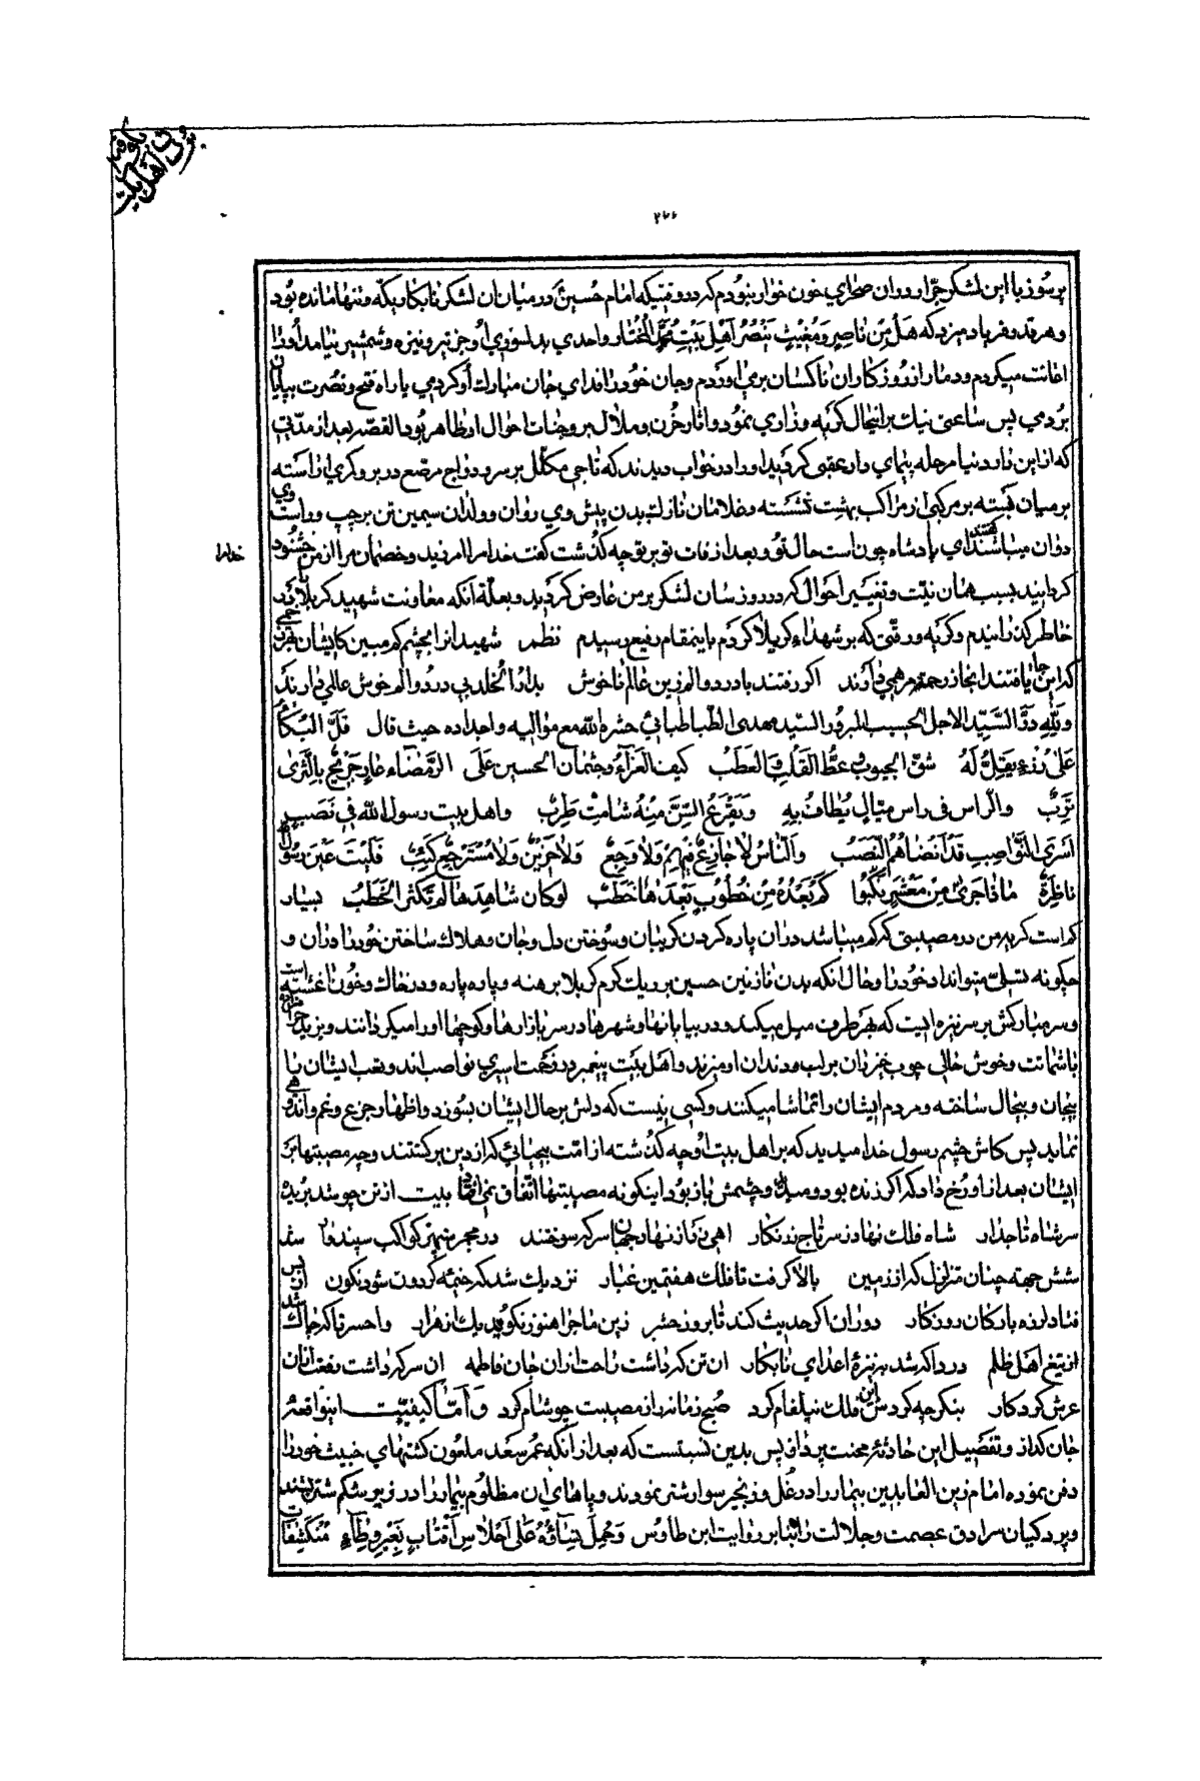 بردن اهل بیت
۲۶۶
پرسوز با این لشکر جرّار در ان صحرای خون خوار نبودم که در وقتیکه امام حسینؑ در میان ان لشکر نابکار یکّه و تنها مانده بود
و هر قدر فریاد میزد که هَل مِن ناصِرٍ وَ مُغیثٍ یَنصُرُ اَهلَ بَیتِ مُحَمَّدٍ المُختار و احدی بدلسوزی او جز تیر و نیزه و شمشیر نیامد او را
اعانت میکردم و دمار از روزکار ان ناکسان برمی اوردم و جان خود را فدای جان مبارک او کردمی یا راه فتح و نصرت بپایان
بردمی پس ساعتی نیک بر انیحال کریه و زاری نمود و اثار حزن و ملال بر وجنات احوال او ظاهر بود القصه بعد از مدّتی
که از این دار دنیا مرحله پیمای دار عقبی کردید او را در خواب دیدند که تاجی مکلّل بر سر و دواج مرصّع در بر و کمری اراسته
بر میان بسته بر مرکبی از مراکب بهشت نشسته و غلامان نازک بدن پیش وی روان و ولدان سیمین تن بر چپ و راست وی
دوان میباشند گفتند ای پادشاه چون است حال تو و بعد از وفات تو بر تو چه کذشت کفت خدا مرا امرزید و خصمان مرا از من خشنود
خدا مرا
کردانید بسبب همان نیّت و تغییر احوال که در روز سان لشکر بر من عارض کردید و بعلّة انکه معاونت شهید کربلا در
خاطر کذرانیدم و کریه و رقّتی که بر شهداء کربلا کردم باینمقام رفیع رسیدم نظم شهیدانرا بچشم کم مبین کایشان بهر زخمی
که اینجا یافتند انجا ز رحمة مرهمی دارند اکر رفتند با درد و الم زین عالم ناخوش بدار الخلد بی درد و الم خوش عالمی دارند
و لِلّه درّ السّیّد الاجل الحسیب المبرور السیّد مهدی الطّباطبائی حشره الله مع موالیه و اجداده حیث قال قَلَّ البُکاءُ
عَلی رُزءٍ یَقِلُّ لَهُ شَقُّ الجُیوبِ وَ عَطُّ القَلبِ وَ العَطَبُ کیفَ العَزآءُ وَ جُثمانُ الحسینِ عَلَی الرَّمضَاءِ عارٍ جَریحٌ بِالثَّری
تَرِبٌ والرّاس فی راس میّالٍ یُطافُ بِهِ وَ یَقرَعُ السِّنَّ مِنهُ شامِتٌ طَرِبٌ و اهل بیت رسول الله فی نَصَبٍ
اَسرَی النَّواصِبِ قَد اَنضاهُمُ النَّصَبُ وَ النّاسُ لا جازِعٌ فیهِم وَ لا وَجِعٌ وَ لا حَزینٌ وَ لا مُستَرجِعٌ کَئِبٌ فَلَیتَ عَینَ رَسولِ اللهِ
ناظِرَةٌ ماذا جَری مِن مَعشَرٍ نَکَبوا کَم بُعدَهُ مِن خُطوبٍ بَعدَها خُطَبٌ لو کان شاهِدَها لم تکثُرِ الخُطَبُ بسیار
کم است کریه من در مصیبتی که کم میباشد در ان پاره کردن کریبان و سوختن دل و جان و هلاک ساختن خود را در ان و
چکونه تسلّی میتواند داد خود را و حال انکه بدن نازنین حسین بر ریک کرم کربلا برهنه و پاره پاره و در خاک و خون اغشته است
و سر مبارکش بر سر نیزه ایست که بهر طرف میل میکند و در بیابانها و شهرها در سر بازارها و کوچها او را میکردانند و یزید حرامزاده
با شماتت و خوش حالی چوب خیزران بر لب و دندان او میزند و اهل بیت پیغمبر در زحمت اسیری نواصب اند و تعب ایشان را
بیجان و بیحال ساخته و مردم ایشان را تماشا میکنند و کسی نیست که دلش بر حال ایشان بسوزد و اظهار جزع و غم و اندوهی
نماید پس کاش چشم رسول خدا میدید که بر اهل بیت او چه کذشته از امّت بیحیائی که از دین برکشتند و چه مصیبتها بر
ایشان بعد از او رخ داد که اکر زنده بود و میدید و چشمش باز بود اینکونه مصیبتها اتّفاق نمی افتاد بیت از تن چو شد بریده
سر شاه تاجدار شاه فلک نهاد ز سر تاج زرنکار اهی ز ناز نهاد جهان سر که سوختند در مجمر سپهر کواکب سپندوار شد
شش جهة چنان متزلزل که از زمین بالا کرفت تا فلک هفتمین غبار نزدیک شد که خیمه کردون شود نکون از بس
فتاد لرزه بارکان روزکار دوران اکر حدیث کند تا بروز حشر زین ماجرا هنوز نکوید یک از هزار واحسرتا که چاک شد
از تیغ اهل ظلم دردا که شد به نیزۀ اعدای نابکار ان تن که داشت راحت از ان جان فاطمه ان سر که داشت رفعت از ان
عرش کردکار بنکر چه کردش این فلک نیلفام کرد صبح زمانه را ز مصیبت چو شام کرد وَ اَمّا کیفیّت اینواقعۀ
جان کداز و تفصیل این حادثۀ محنت پرداز پس بدین نسبتست که بعد از آنکه عمر سعد ملعون کشتهای خبیث خود را
دفن نموده امام زین العابدین بیمار را در غُل و زنجیر سوار شتر نمودند و پاهای ان مظلوم بیمار را در زیر شکم شتر بستند
و پردکیان سرادق عصمت و جلالت را بنا بر روایت ابن طاوس وَ حُمِلَ نِساؤُهُ عَلی اَحلاسِ اَقتابٍ بِغَیرِ وِطآءٍ مُنکَشِفاتٍ